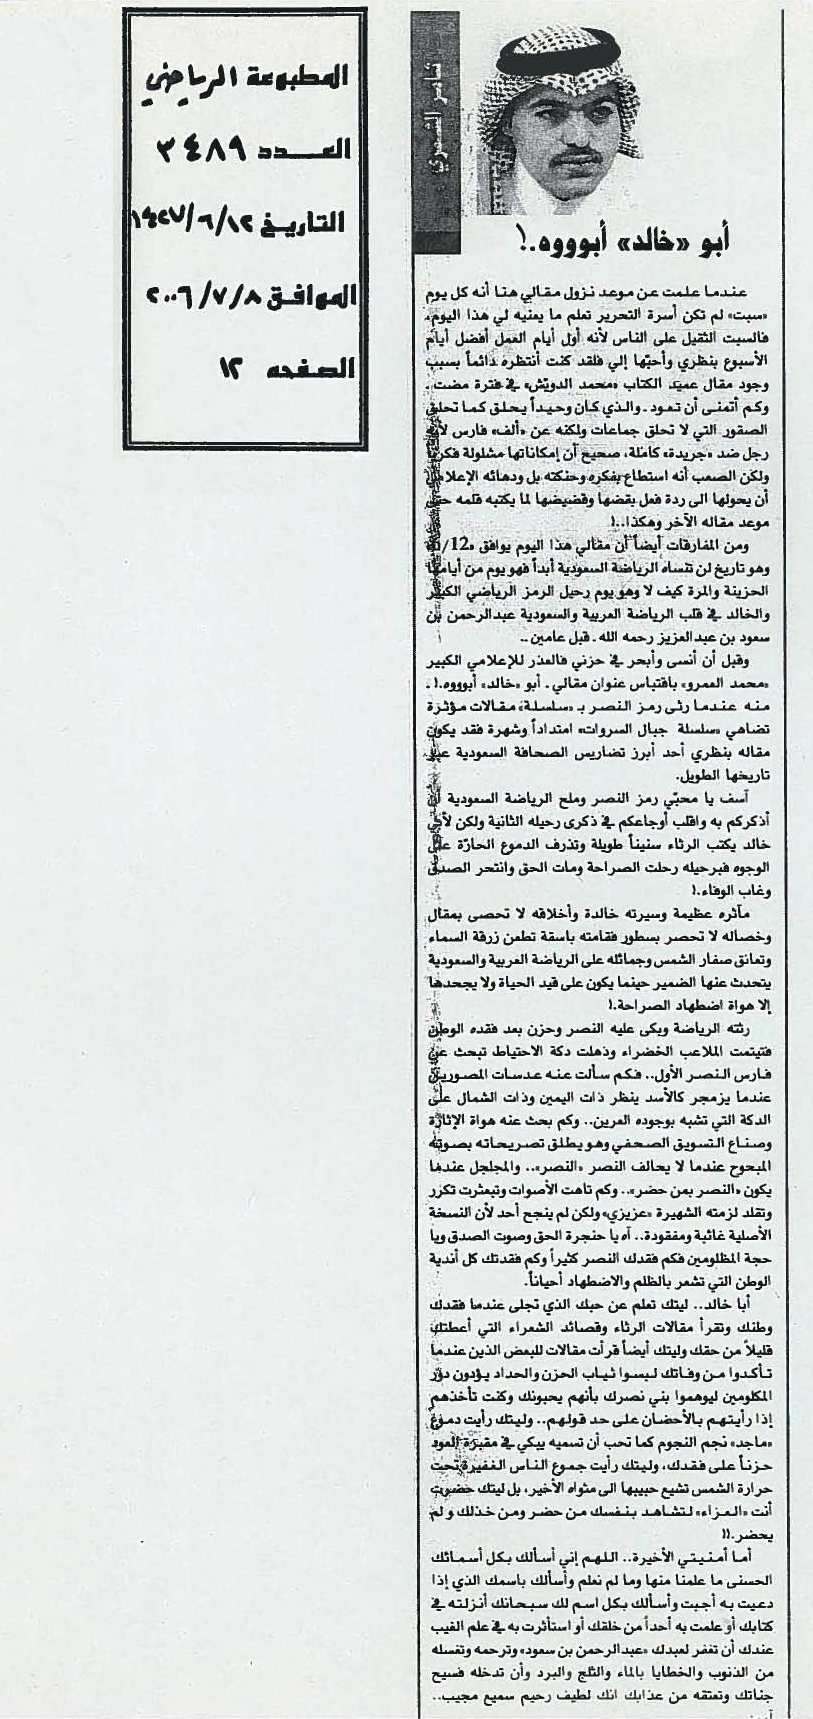 المطبوعة الرياضي
العدد ٣٤٨٩
التاريخ ١٤٢٧/٦/١٢
الموافق ٢٠٠٦/٧/٨
الصفحه ١٢
ثامر الشمري
أبو «خالد» أبوووه.!
عندما علمت عن موعد نزول مقالي هنا أنه كل يوم
«سبت» لم تكن أسرة التحرير تعلم ما يعنيه لي هذا اليوم،
فالسبت الثقيل على الناس لأنه أول أيام العمل أفضل أيام
الأسبوع بنظري وأحبّها إلي فلقد كنت أنتظره دائماً بسبب
وجود مقال عميد الكتاب «محمد الدويّش» في فترة مضت ـ
وكم أتمنى أن تعود ـ والذي كان وحيداً يحلق كما تحلق
الصقور التي لا تحلق جماعات ولكنه عن «ألف» فارس
رجل ضد «جريدة» كاملة، صحيح أن إمكاناتها مشلولة فكر
ولكن الصعب أنه استطاع بفكره وحنكته بل ودهائه الإعلامي
أن يحولها الى ردة فعل بقضها وقضيضها لما يكتبه قلمه
موعد مقاله الآخر وهكذا..!
ومن المفارقات أيضاً أن مقالي هذا اليوم يوافق «12/
وهو تاريخ لن تنساه الرياضة السعودية أبداً فهو يوم من أيامها
الحزينة والمرة كيف لا وهو يوم رحيل الرمز الرياضي الكبير
والخالد في قلب الرياضة العربية والسعودية عبدالرحمن بن
سعود بن عبدالعزيز رحمه الله ـ قبل عامين ..
وقبل أن أنسى وأبحر في حزني فالعذر للإعلامي الكبير
«محمد العمرو» باقتباس عنوان مقالي ـ أبو «خالد» أبوووه.! ـ
منه عندما رثى رمز النصر بـ «سلسلة» مقالات مؤثرة
تضاهي «سلسلة جبال السروات» امتداداً وشهرة فقد يكون
مقاله بنظري أحد أبرز تضاريس الصحافة السعودية عبر
تاريخها الطويل.
آسف يا محبّي رمز النصر وملح الرياضة السعودية أن
أذكركم به واقلب أوجاعكم في ذكرى رحيله الثانية ولكن
خالد يكتب الرثاء سنيناً طويلة وتذرف الدموع الحارّة على
الوجوه فبرحيله رحلت الصراحة ومات الحق وانتحر الصدق
وغاب الوفاء.!
مآثره عظيمة وسيرته خالدة وأخلاقه لا تحصى بمقال
وخصاله لا تحصر بسطور فقامته باسقة تطعن زرقة السماء
وتعانق صفار الشمس وجمائله على الرياضة العربية والسعودية
يتحدث عنها الضمير حينما يكون على قيد الحياة ولا يجحدها
إلا هواة اضطهاد الصراحة.!
رثته الرياضة وبكى عليه النصر وحزن بعد فقده الوطن
فتيتمت الملاعب الخضراء وذهلت دكة الاحتياط تبحث عن
فارس النصر الأول.. فكم سألت عنه عدسات المصورين
عندما يزمجر كالأسد ينظر ذات اليمين وذات الشمال على
الدكة التي تشبه بوجوده العرين.. وكم بحث عنه هواة الإثارة
وصناع التسويق الصحفي وهو يطلق تصريحاته بصوته
المبحوح عندما لا يحالف النصر «النصر».. والمجلجل عندما
يكون «النصر بمن حضر».. وكم تاهت الأصوات وتبعثرت تكرر
وتقلد لزمته الشهيرة «عزيزي» ولكن لم ينجح أحد لأن النسخة
الأصلية غائبة ومفقودة.. آه يا حنجرة الحق وصوت الصدق ويا
حجة المظلومين فكم فقدك النصر كثيراً وكم فقدتك كل أندية
الوطن التي تشعر بالظلم والاضطهاد أحياناً.
أبا خالد.. ليتك تعلم عن حبك الذي تجلى عندما فقدك
وطنك وتقرأ مقالات الرثاء وقصائد الشعراء التي أعطتك
قليلاً من حقك وليتك أيضاً قرأت مقالات للبعض الذين عندما
تأكدوا من وفاتك لبسوا ثياب الحزن والحداد يؤدون دور
المكلومين ليوهموا بني نصرك بأنهم يحبونك وكنت تأخذهم
إذا رأيتهم بالأحضان على حد قولهم.. وليتك رأيت دموع
«ماجد» نجم النجوم كما تحب أن تسميه يبكي في مقبرة العود
حزناً على فقدك، وليتك رأيت جموع الناس الغفيرة تحت
حرارة الشمس تشيع حبيبها الى مثواه الأخير، بل ليتك حضرت
أنت «العزاء» لتشاهد بنفسك من حضر ومن خذلك ولم
يحضر.!!
أما أمنيتي الأخيرة.. اللهم إني أسألك بكل أسمائك
الحسنى ما علمنا منها وما لم نعلم وأسألك باسمك الذي إذا
دعيت به أجبت وأسألك بكل اسم لك سبحانك أنزلته في
كتابك أو علمت به أحداً من خلقك أو استأثرت به في علم الغيب
عندك أن تغفر لعبدك «عبدالرحمن بن سعود» وترحمه وتغسله
من الذنوب والخطايا بالماء والثلج والبرد وأن تدخله فسيح
جناتك وتعتقه من عذابك انك لطيف رحيم سميع مجيب..